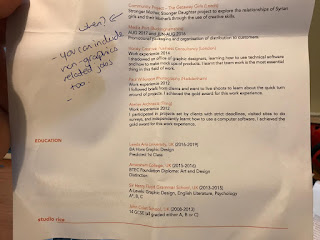 Community Project - The Gateway Girls (Current)
Stronger Mother, Stronger Daughter project to explore the relationships of Syrian
girls and their Mothers through the use of creative skills.
when?
- you can include
non-graphics
related jobs
too.
AUG 2017 and JUN-AUG 2018
Promotional packaging and organisation of distribution to customers.
Work experience 2014
I shadowed an office of graphic designers, learning how to use technical software
and how to make mock ups of products. I learnt that team work is the most essential
thing in this field of work.
Work experience 2012
I followed briefs from clients and went to live shoots to learn about the quick turn
around of projects. I achieved the gold award for this work experience.
Work experience 2012
I participated in projects set by clients with strict deadlines, visited sites to do
surveys, and independently learnt how to use a computer software, I achieved the
gold award for this work experience.
EDUCATION
Leeds Arts University, UK (2016-2019)
BA Hons Graphic Design
Predicted 1st Class
UK (2015-2016)
BTEC Foundation Diploma: Art and Design
Distinction
Grammar School, UK (2013-2015)
A Levels: Graphic Design, English Literature, Psychology
A*, B, C
UK (2008-2013)
14 GCSE's (all graded either A, B or C)